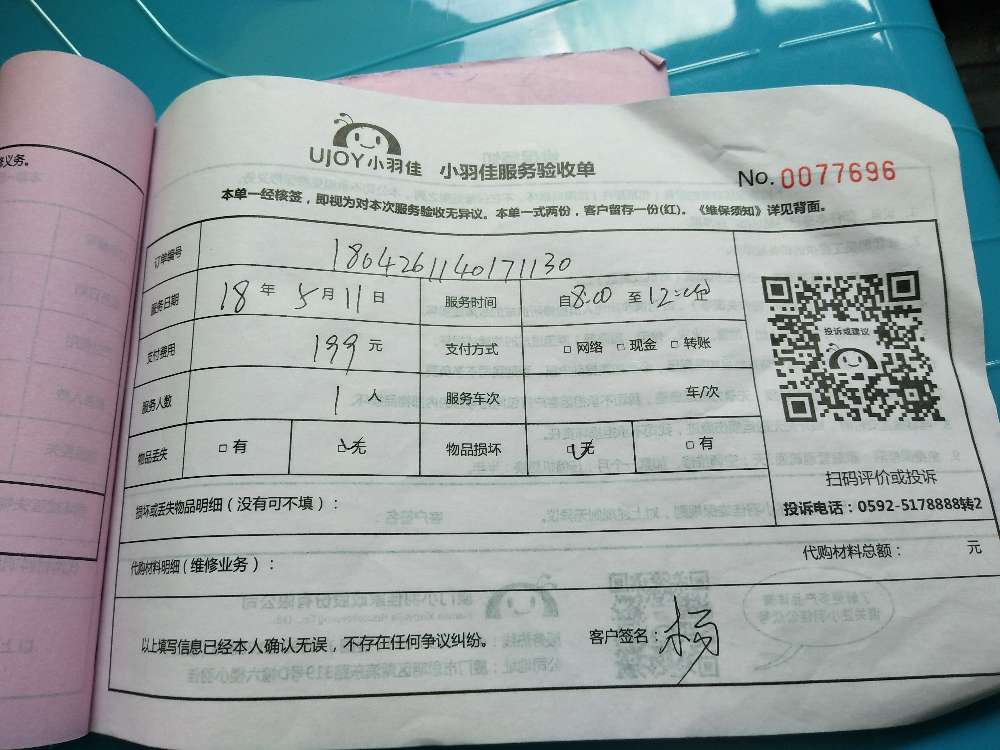 务。
UJOY小羽佳 小羽佳服务验收单
No. 0077696
本单一经核签，即视为对本次服务验收无异议。本单一式两份，客户留存一份(红)。《维保须知》详见背面。
订单编号 1804261140171130
服务日期 18 年 5月11日 服务时间 自8:00 至12:00
支付费用 199元 支付方式 □ 网络 □ 现金 □ 转账
服务人数 1人 服务车次 车/次
物品丢失 □ 有 ☑无 物品损坏 ☑无 □ 有
投诉或建议
扫码评价或投诉
投诉电话：0592-5178888转2
损坏或丢失物品明细（没有可不填）：
代购材料明细（维修业务）：
代购材料总额： 元
以上填写信息已经本人确认无误，不存在任何争议纠纷。 客户签名：杨